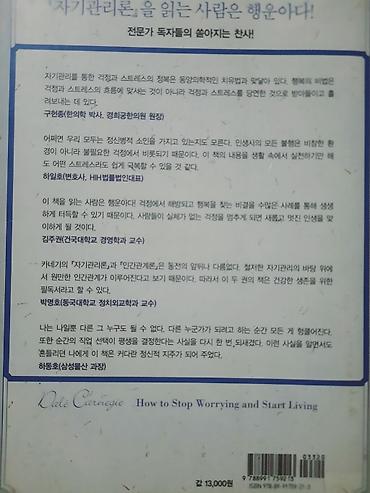 『자기관리론』을 읽는 사람은 행운아다!
전문가 독자들의 쏟아지는 찬사!
자기관리를 통한 걱정과 스트레스의 정복은 동양의학적인 치유법과 맞닿아 있다. 행복의 비법은
걱정과 스트레스의 흐름에 맞서는 것이 아니라 걱정과 스트레스를 당연한 것으로 받아들이고 흘
려보내는 데 있다.
구한종(한의학 박사, 경희궁한의원 원장)
어쩌면 우리 모두는 정신병적 소인을 가지고 있는지도 모른다. 인생사의 모든 불행은 비참한 환
경이 아니라 불필요한 걱정에서 비롯되기 때문이다. 이 책의 내용을 생활 속에서 실천하기만 해
도 어떤 스트레스라도 쉽게 극복할 수 있을 것 같다.
하일호(변호사, HIH법률법인대표)
이 책을 읽는 사람은 행운아다! 걱정에서 해방되고 행복을 찾는 비결을 수많은 사례를 통해 생생
하게 터득할 수 있기 때문이다. 사람들이 실체가 없는 걱정을 멈추게 되면 새롭고 멋진 인생을 맞
이하게 될 것이다.
김주권(건국대학교 경영학과 교수)
카네기의 『자기관리론』과 『인간관계론』은 동전의 앞뒤나 다름없다. 철저한 자기관리의 바탕 위에
서 원만한 인간관계가 이루어진다고 보기 때문이다. 따라서 이 두 권의 책은 건강한 생존을 위한
필독서라고 할 수 있다.
박명호(동국대학교 정치외교학과 교수)
나는 나일뿐 다른 그 누구도 될 수 없다. 다른 누군가가 되려고 하는 순간 모든 게 헝클어진다.
또한 순간의 직업 선택이 평생을 결정한다는 사실을 다시 한 번 되새겼다. 이런 사실을 알면서도
흔들리던 나에게 이 책은 커다란 정신적 지주가 되어 주었다.
하동호(삼성물산 과장)
Dale Carnegie How to Stop Worrying and Start Living
03320
9 788991 759213
값 13,000원
ISBN 978-89-91759-21-3